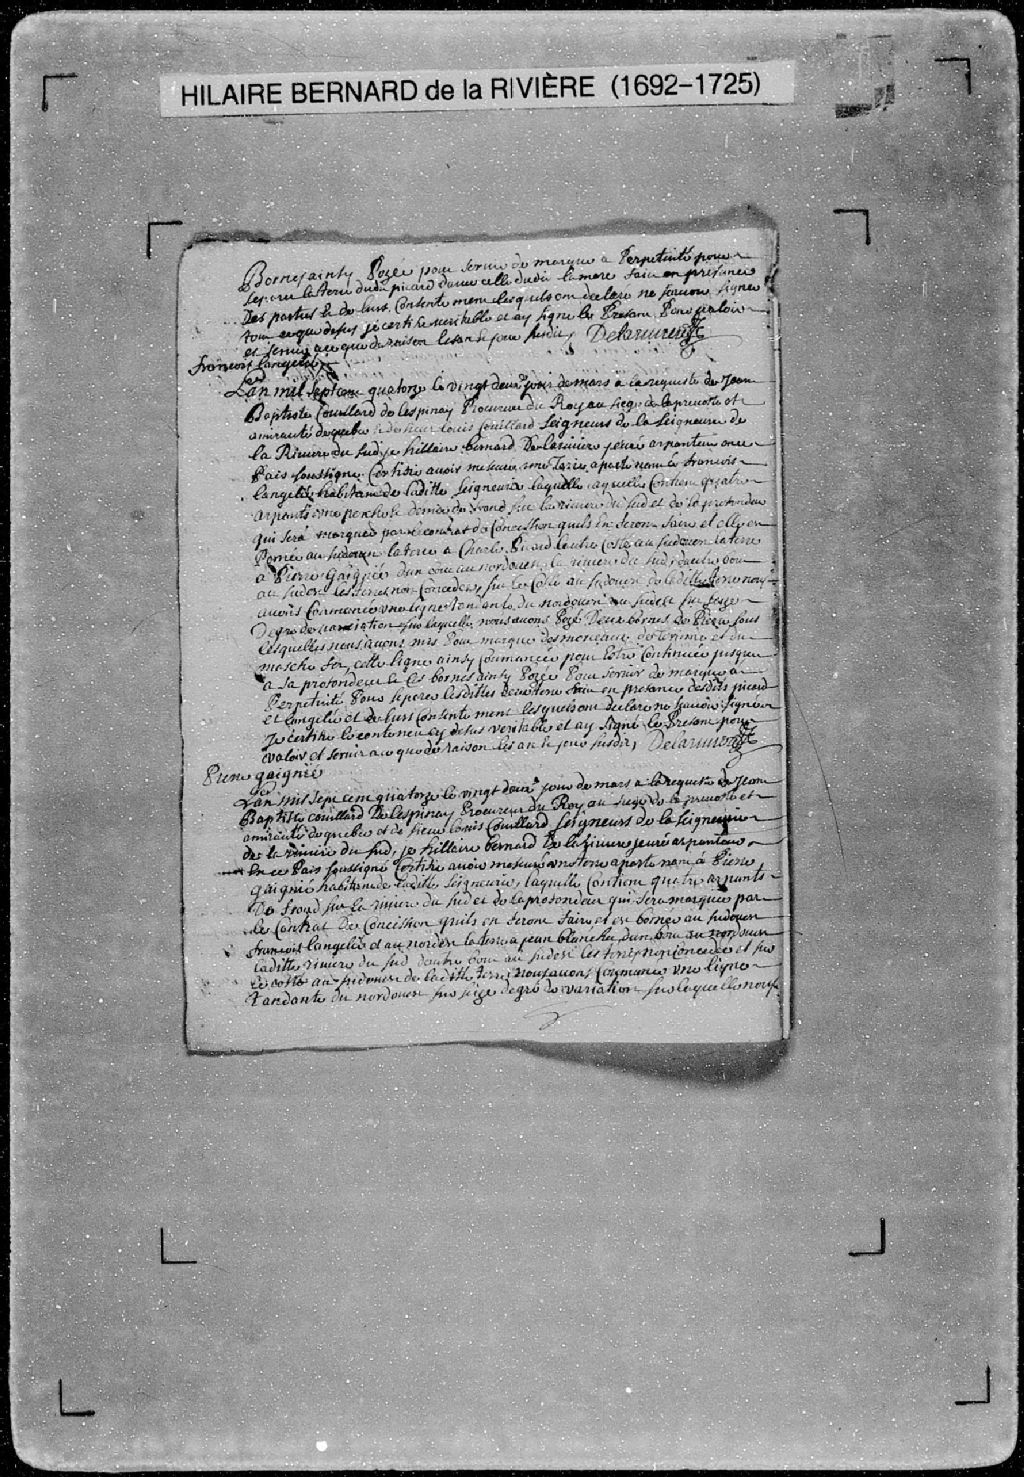 HILAIRE BERNARD de la RIVIÈRE (1692–1725)
Bornes ainsy Pozée pour servir de marque a Perpetuité pour
separer la terre dudit picard davec celle dudit lamere fait en presance
Des parties et de leurs Consentement lesquels ont declaré ne scavoir signer
tout ce que desus je certifie veritable et ay signé le Presant Pour valoir
et servir a ce que de raison les an et jour susdit Delariviere
francois langelié
Lan mil sept cent quatorze le vingt deux jour de mars a la requeste de Jean
Baptiste Couillard de Lespinay Procureur du Roy au siege de la prevosté et
amirauté de quebec et de sieur Louis Couillard Seigneurs de la Seigneurie de
la Riviere du sud je hillaire bernard De lariviere juré arpenteur en ce
Pais soussigné Certifie avoir mesuré une Terre apartenant a francois
langelié habitant de laditte Seigneurie laquelle Contient quatre
arpents une perche et demie de frond sur la riviere du sud et de la profondeur
qui sera marquée par le contrat de Concession quils en seront faire et elle en
Bornée au sudouest la terre a Charle Picard lautre Costé au nordest la terre
a Pierre Gaignié dun bout au nordouest la riviere du sud dautre bout
au sudest les terres non Concedées, sur le Costé au sudouest de laditte terre nous
avons Commancé une ligne tandante du nordouest au sudest sur seize
Degré de variation sur laquelle nous avons Pozé Deux bornes de Pierre sous
Lesquelles nous avons mis Pour marque des morceaux de terinne et du
masche fer, cette ligne ainsy Commancée pour Estre Continuée jusques
a sa profondeur et Ces bornes ainsy Pozée Pour servir de marque a
Perpetuité Pour separer lesdittes deux terre fait en presance desdits picard
et langelié et de leurs Consentement lesquels ont declaré ne scavoir signer
Je certifie le contenu cy desus veritable et ay signé le Presant pour
valoir et servir a ce que de raison les an et jour susdit, Delariviere
Pierre gaignié
Lan mil sept cent quatorze le vingt deux jour de mars a la requeste de Jean
Baptiste couillard De Lespinay Procureur du Roy au siege de la prevosté et
amirauté de quebec et de sieur Louis Couillard Seigneurs de la Seigneurie
de la riviere du sud, je hillaire bernard De lariviere juré arpenteur
En ce Pais soussigné Certifie avoir mesuré une terre apartenant a Pierre
gaignié habitant de laditte Seigneurie, laquelle Contient quatre arpents
De frond sur la riviere du sud et de la profondeur qui sera marquée par
le Contrat De Concession quils en seront faire et est bornée au sudouest
francois langelié et au nordest la terre a jean blanchet, dun bout au nordouest
laditte riviere du sud dautre bout au sudest les terres non concedées et sur
le costé au sudouest de laditte terre nous avons Commancé une ligne
tandante du nordouest sur seize degré de variation sur laquelle nous